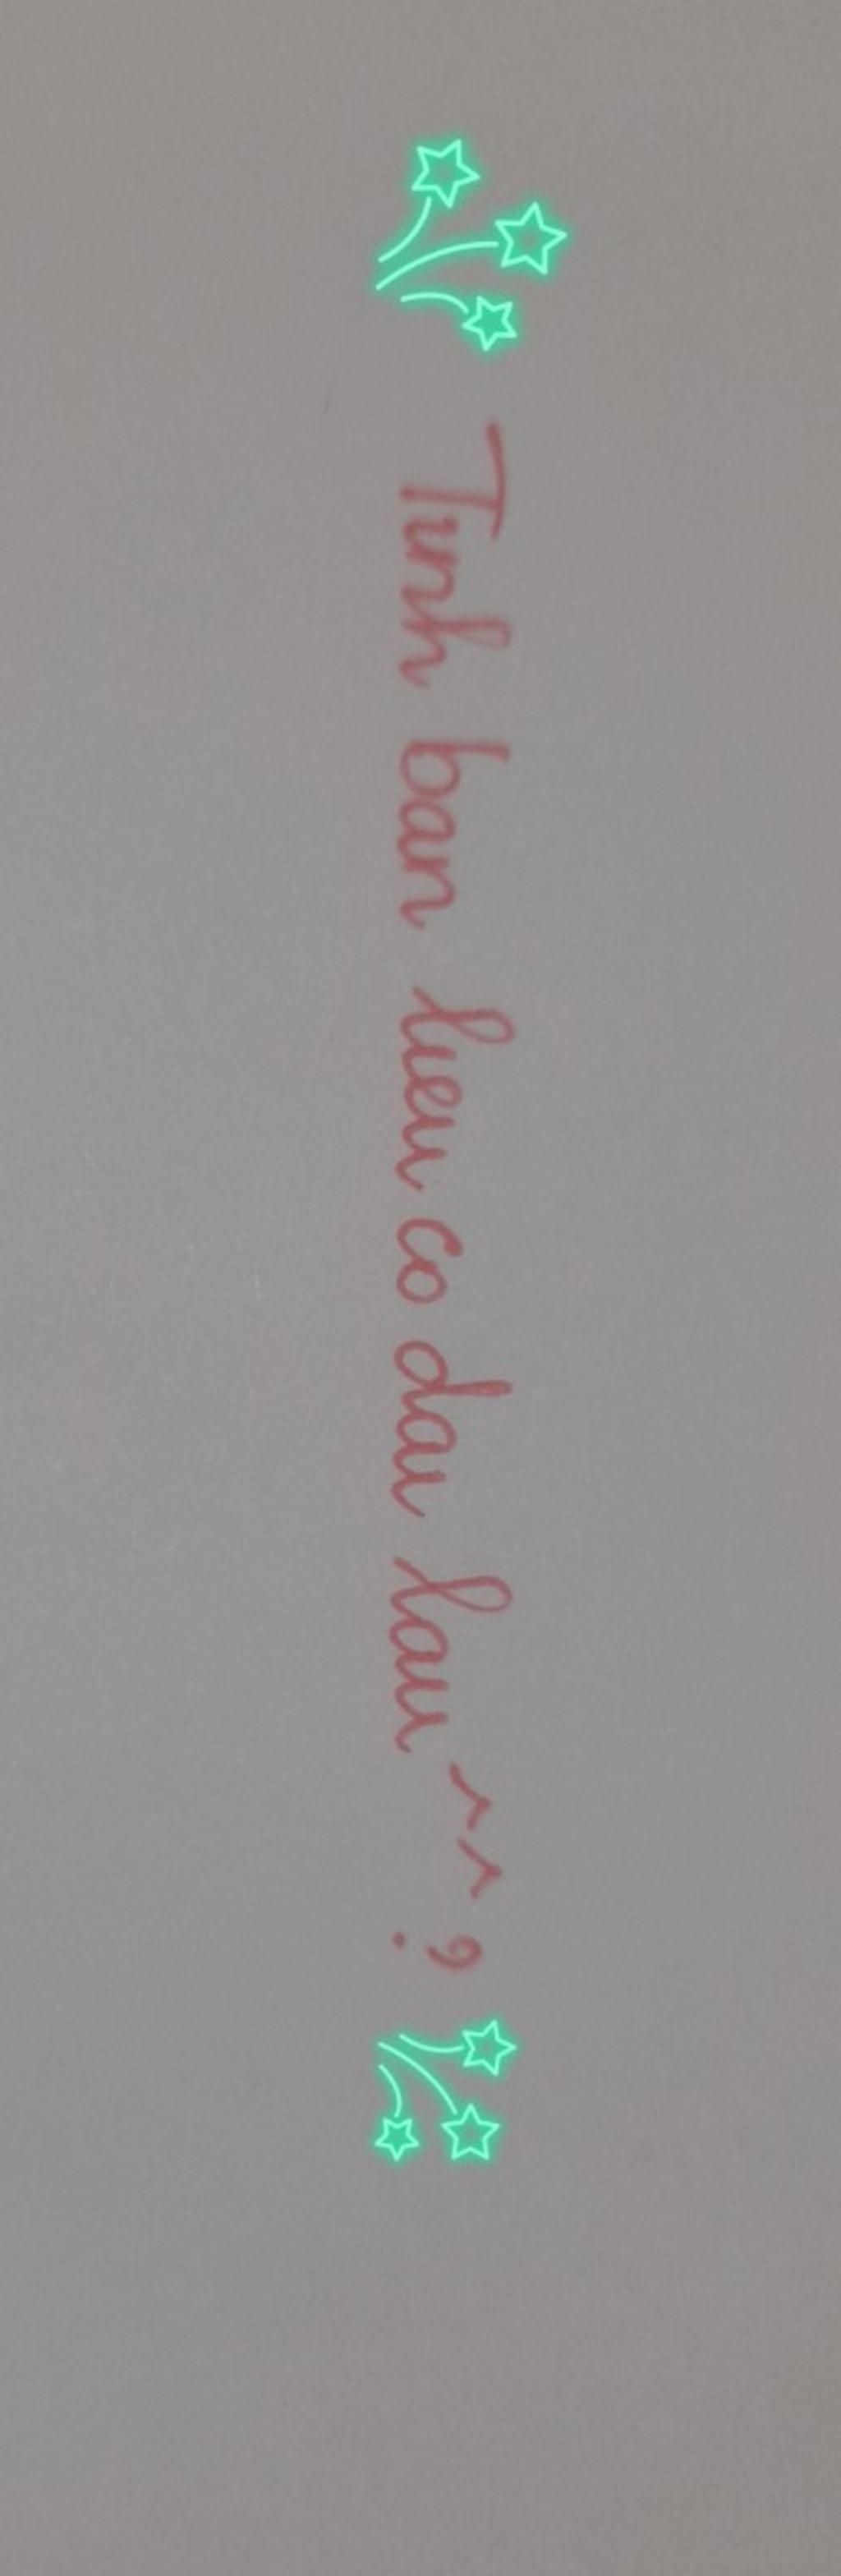 Tinh ban lieu co dai lau ^^?